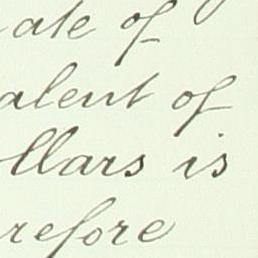 ate of
alent of
llars is
refore